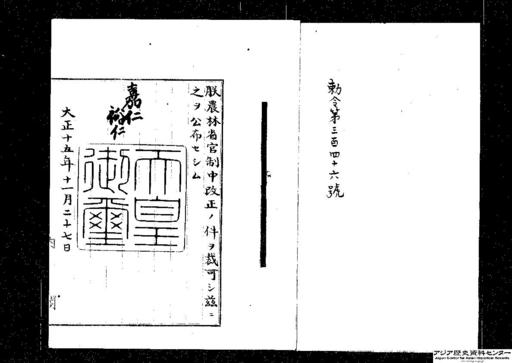 勅令第三百四十六號
朕農林省官制中改正ノ件ヲ裁可シ茲ニ
之ヲ公布セシム
嘉仁
裕仁
天皇
御璽
大正十五年十一月二十七日
内閣
アジア歴史資料センター
Japan Center for Asian Historical Records